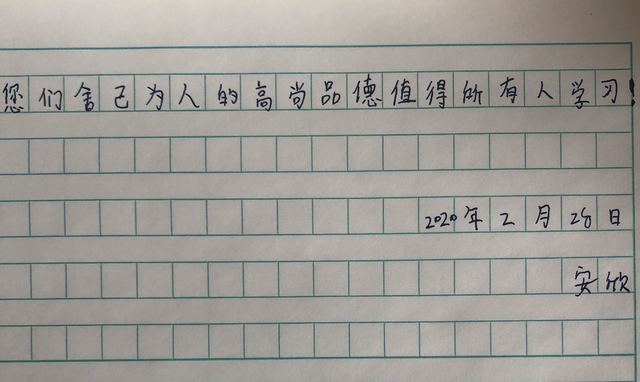 您们舍己为人的高尚品德值得所有人学习!
2020年2月28日
安欣